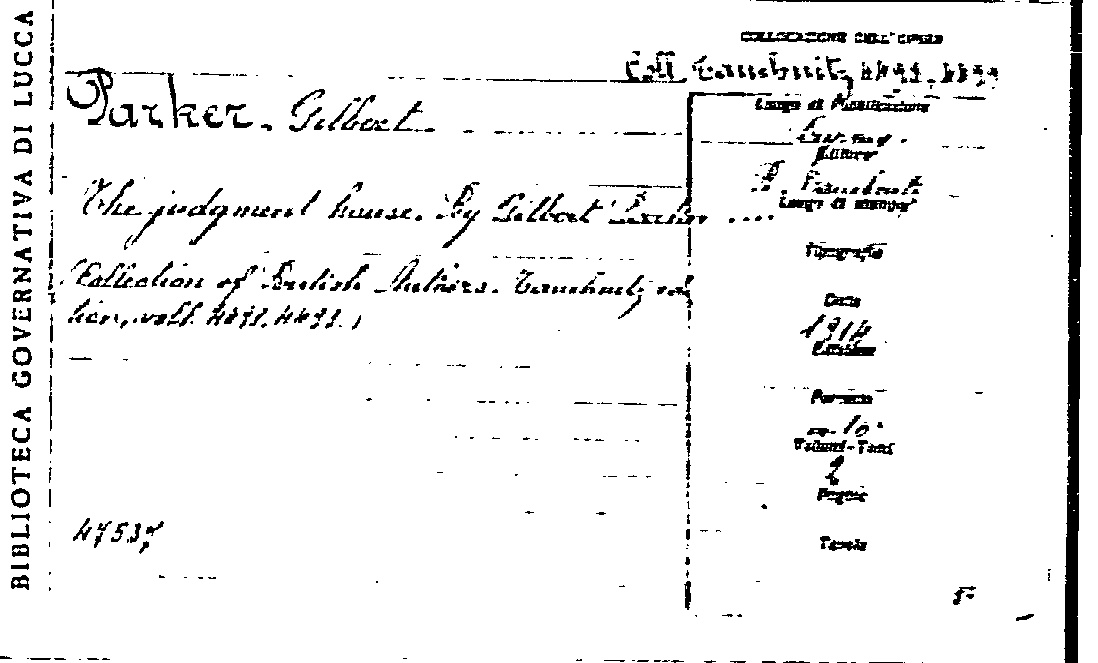 BIBLIOTECA GOVERNATIVA DI LUCCA
COLLOCAZIONE DELL'OPERA
Coll. Tauchnitz
Parker. Gilbert.
Luogo di Pubblicazione
Editore
The judgment house. By Gilbert Parker ....
B. Tauchnitz
Luogo di stampa
Tipografia
(Collection of British Authors. Tauchnitz edi
tion, voll.
Data
1914
Formato
in-16°
Volumi-Tomi
2
Pagine
47537
Tavole